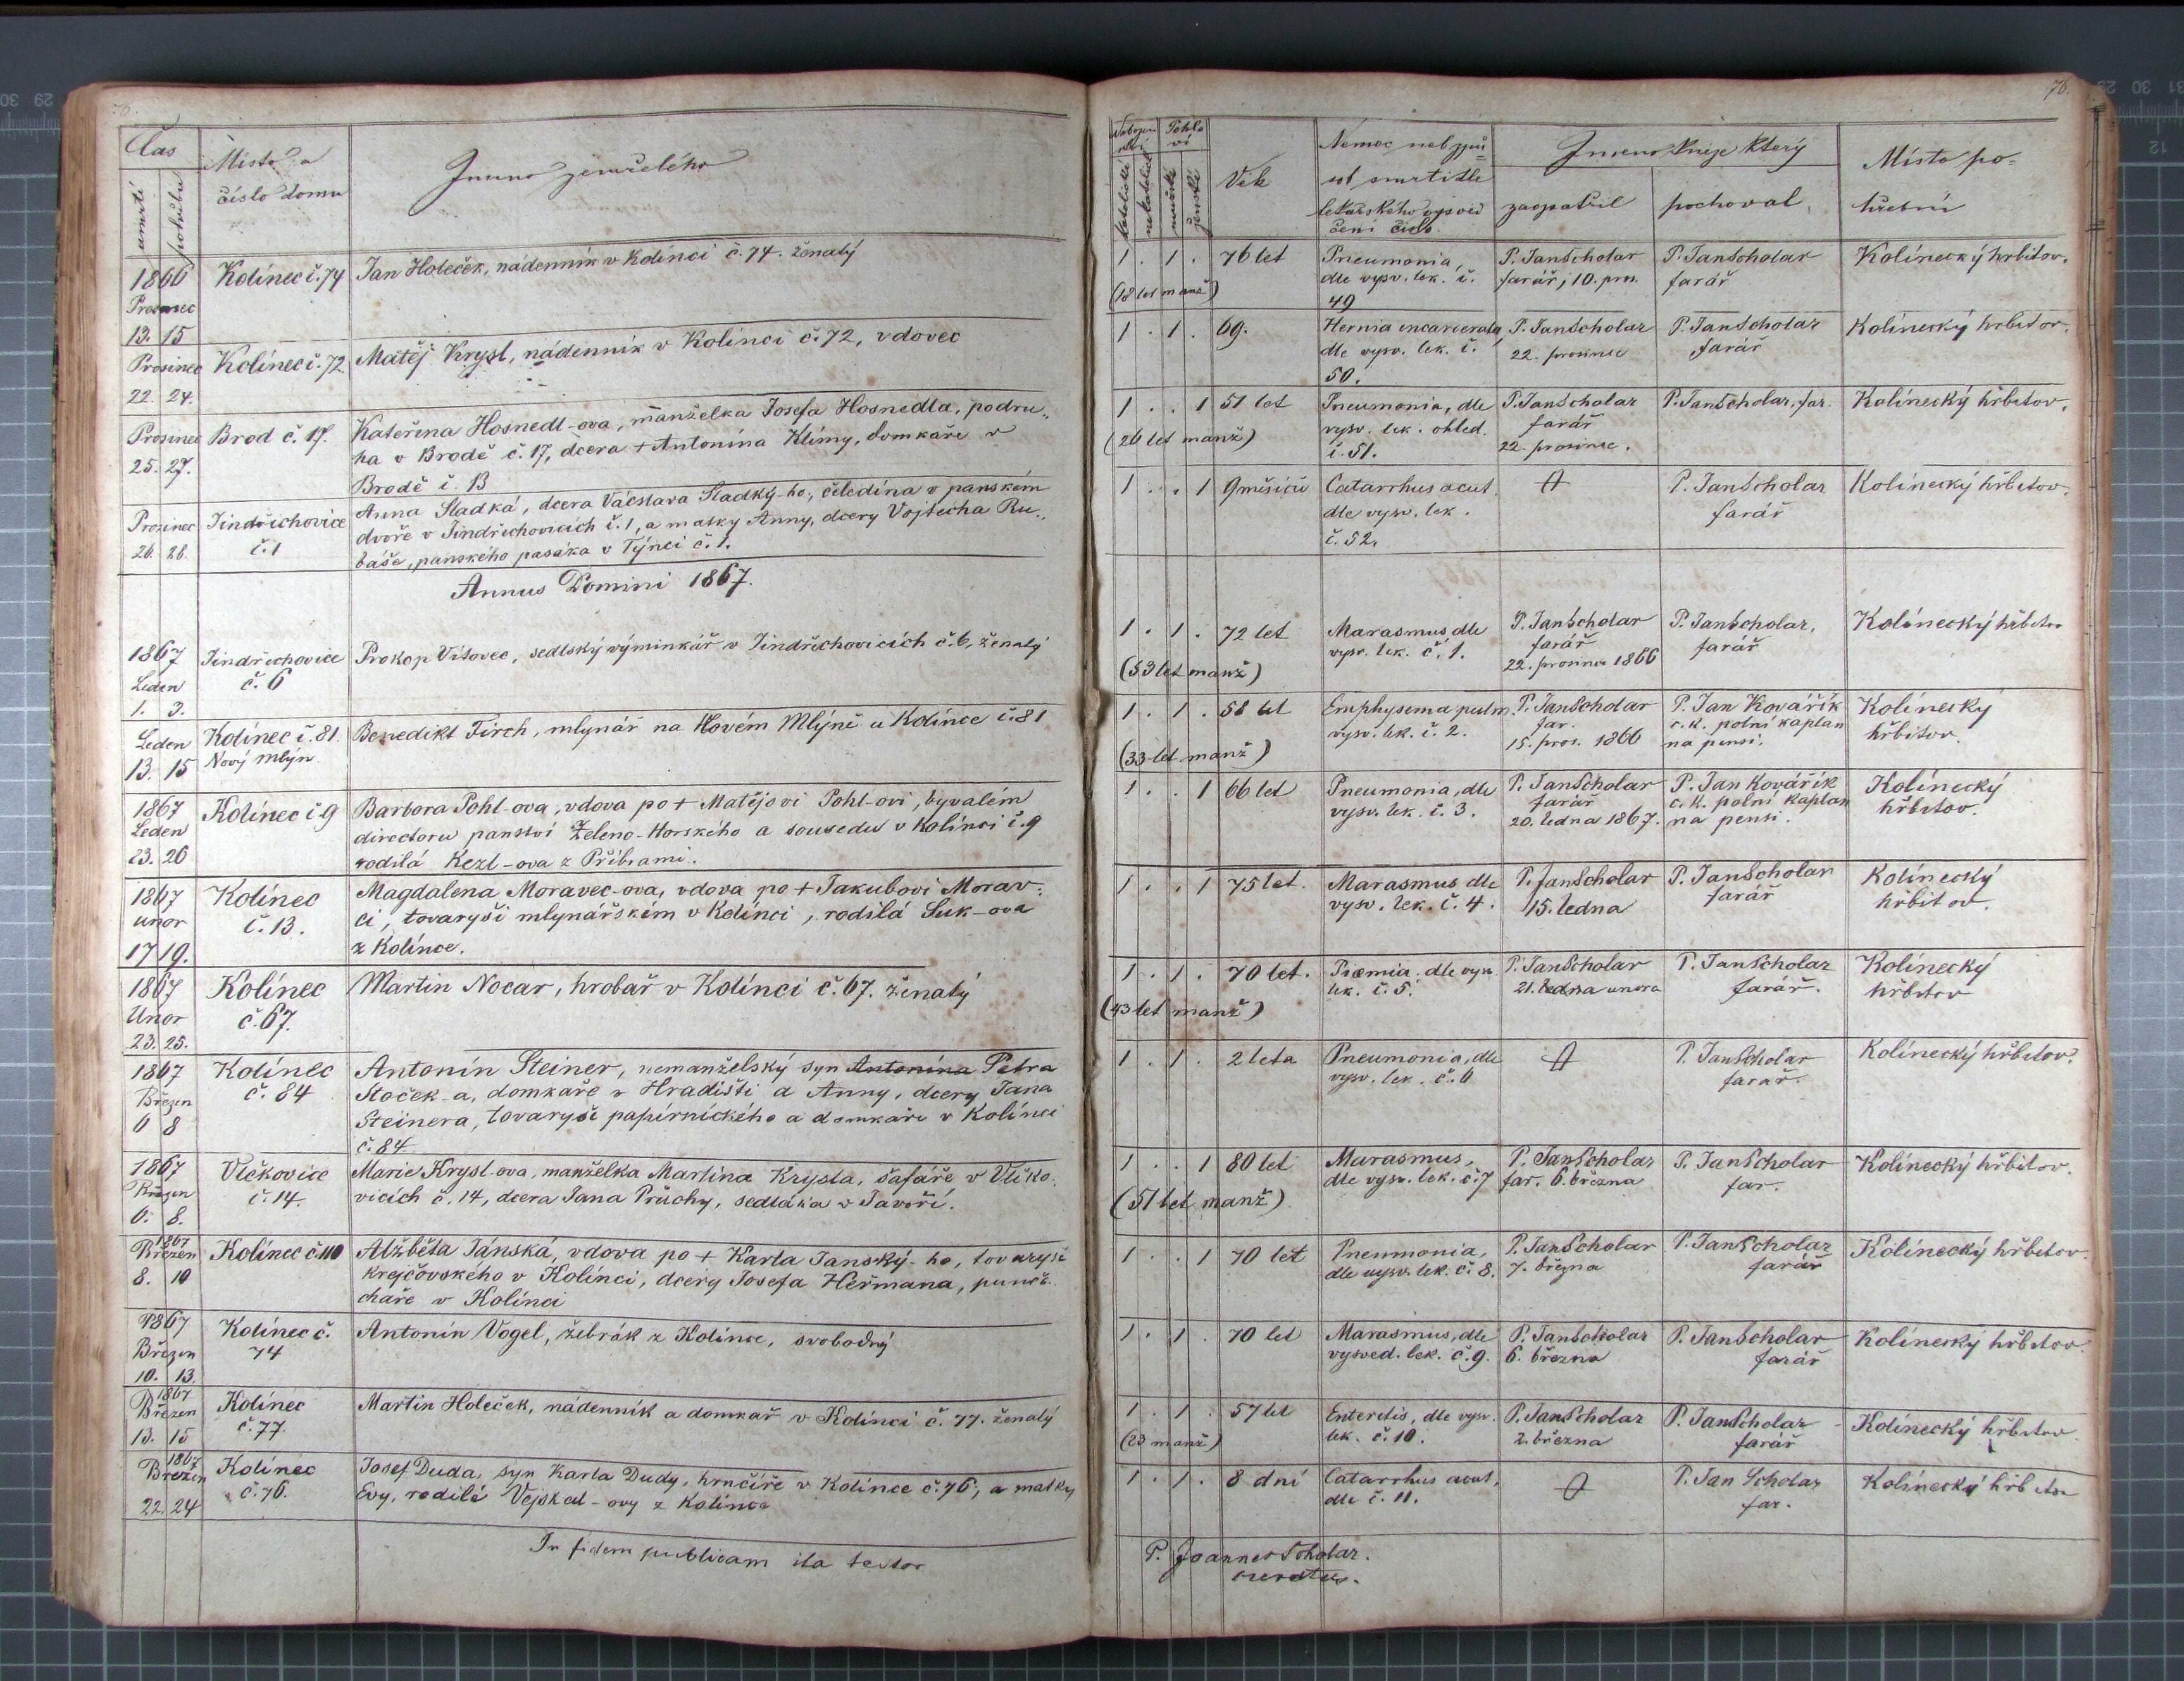 76.
Čas
úmrtí
pohřbu
Místo a
číslo domu
Jmeno zemřelého
1866
Prosinec
13. 15
Kolínec č. 74
Jan Holeček, nádenník v Kolínci č. 74. ženatý
Prosinec
22. 24.
Kolínec č. 72
Matěj Krysl, nádenník v Kolínci č. 72, vdovec
Prosinec
25. 27.
Brod č. 17.
Kateřina Hosnedl-ova, manželka Josefa Hosnedla, podru-
ha v Brodě č. 17, dcera + Antonína Klímy, domkáře v
Brodě č. 13
Prosinec
26. 28.
Jindřichovice
č. 1
Anna Sladká, dcera Václava Sladký-ho, čeledína v panském
dvoře v Jindřichovicích č. 1, a matky Anny, dcery Vojtěcha Ru-
báše, panského pasáka v Týnci č. 1.
Annus Domini 1867.
1867
Leden
1. 3.
Jindřichovice
č. 6
Prokop Vítovec, sedlský výminkář v Jindřichovicích č. 6, ženatý
Leden
13. 15
Kolínec č. 81.
Nový mlýn
Benedikt Firch, mlynář na Novém Mlýně u Kolínce č. 81
1867
Leden
23. 26
Kolínec č. 9
Barbora Pohl-ova, vdova po + Matějovi Pohl-ovi, byvalém
directoru panství Zeleno-Horského a sousedu v Kolínci č. 9
rodilá Kezl-ova z Příbrami.
1867
unor
17 19.
Kolínec
č. 13.
Magdalena Moravec-ova, vdova po + Jakubovi Morav-
ci, tovaryši mlynářském v Kolínci, rodilá Suk-ova
z Kolínce.
1867
Unor
23. 25.
Kolínec
č. 67.
Martin Nocar, hrobař v Kolínci č. 67. ženatý
1867
Březen
6 8
Kolínec
č. 84
Antonín Steiner, nemanželský syn Antonína Petra
Stoček-a, domkaře v Hradišti a Anny, dcery Jana
Steinera, tovaryše papírnického a domkaře v Kolínci
č. 84
1867
Březen
6. 8.
Vlčkovice
č. 14.
Marie Krysl-ova, manželka Martina Krysla, šafáře v Vlčko-
vicích č. 14, dcera Jana Průchy, sedláka v Javoří.
1867
Březen
8. 10
Kolínec č. 110
Alžběta Jánská, vdova po + Karla Janský-ho, tovaryše
krejčovského v Kolínci, dcery Josefa Heřmana, punčo-
cháře v Kolínci
1867
Březen
10. 13.
Kolínec č.
74
Antonín Vogel, žebrák z Kolince, svobodný
1867
Březen
13. 15
Kolínec
č. 77.
Martin Holeček, nádenník a domkař v Kolínci č. 77. ženatý
1867
Březen
22. 24
Kolínec
č. 76.
Josef Duda, syn Karla Dudy, hrnčíře v Kolínce č. 76, a matky
Evy, rodilé Vejskal-ovy z Kolínce
In fidem publicam ita testor
76.
Pohla
ví
katolické
nekatolické
mužské
ženské
Věk
Nemoc neb způ-
sob smrti dle
lékařského vysvěd
čení číslo
Jmeno kněze který
zaopatřil
pochoval
Místo po-
hřební
1 . 1 . 76 let
(18 let manž)
Pneumonia,
dle vysv. lek. č.
49
P. Jan Scholar
farář, 10. pros.
P. Jan Scholar
farář
Kolínecký hrbitov.
1 . 1 . 69.
Hernia incarcerata,
dle vysv. lek. č.
50.
P. Jan Scholar
22. prosince
P. Jan Scholar
farář
Kolínecký hrbitov.
1 . . 1 51 let
(26 let manž)
Pneumonia, dle
vysv. lek. ohled.
č. 51.
P. Jan Scholar
farář
22. prosince.
P. Jan Scholar, far.
Kolínecký hřbitov.
1 . . 1 9 měsíců
Catarrhus acut.
dle vysv. lek.
č. 52.
P. Jan Scholar
farář
Kolínecký hřbitov.
1 . 1 . 72 let
(53 let manž)
Marasmus, dle
vysv. lek. č. 1.
P. Jan Scholar
farář
22. prosince 1866
P. Jan Scholar,
farář
Kolínecký hřbitov
1 . 1 . 58 let
(33 let manž)
Emphysema pulm.
vysv. lek. č. 2.
P. Jan Scholar
far.
15. pros. 1866
P. Jan Kovářík
c. k. polní kaplan
na pensi.
Kolínecký
hřbitov.
1 . . 1 66 let
Pneumonia, dle
vysv. lek. č. 3.
P. Jan Scholar
farář
20. ledna 1867.
P. Jan Kovářík
c. k. polní kaplan
na pensi.
Kolínecký
hřbitov.
1 . . 1 75 let.
Marasmus dle
vysv. lek. č. 4.
P. Jan Scholar
15. ledna
P. Jan Scholar
farář
Kolínecký
hřbitov.
1 . 1 . 70 let.
(43 let manž)
Piæmia, dle vysv.
lek. č. 5.
P. Jan Scholar
21. ledna unora
P. Jan Scholar
farář.
Kolínecký
hřbitov
1 . 1 . 2 leta
Pneumonia, dle
vysv. lek. č. 6
P. Jan Scholar
farář.
Kolínecký hřbitov.
1 . . 1 80 let
(51 let manž)
Marasmus,
dle vysv. lek. č. 7
P. Jan Scholar
far. 6. března
P. Jan Scholar
far.
Kolínecký hřbitov.
1 . . 1 70 let
Pneumonia,
dle vysv. lek. č. 8.
P. Jan Scholar
7. března
P. Jan Scholar
farář
Kolínecký hřbitov
1 . 1 . 70 let
Marasmus, dle
vysved. lek. č. 9.
P. Jan Scholar
6. března
P. Jan Scholar
farář
Kolínecký hřbitov.
1 . 1 . 57 let
(23 manž)
Enteritis, dle vysv.
lek. č. 10.
P. Jan Scholar
2. března
P. Jan Scholar
farář
Kolínecký hřbitov
1 . 1 . 8 dní
Catarrhus acut,
dle č. 11.
P. Jan Scholar
far.
Kolínecký hřbitov
P. Joannes Scholar.
curatus.